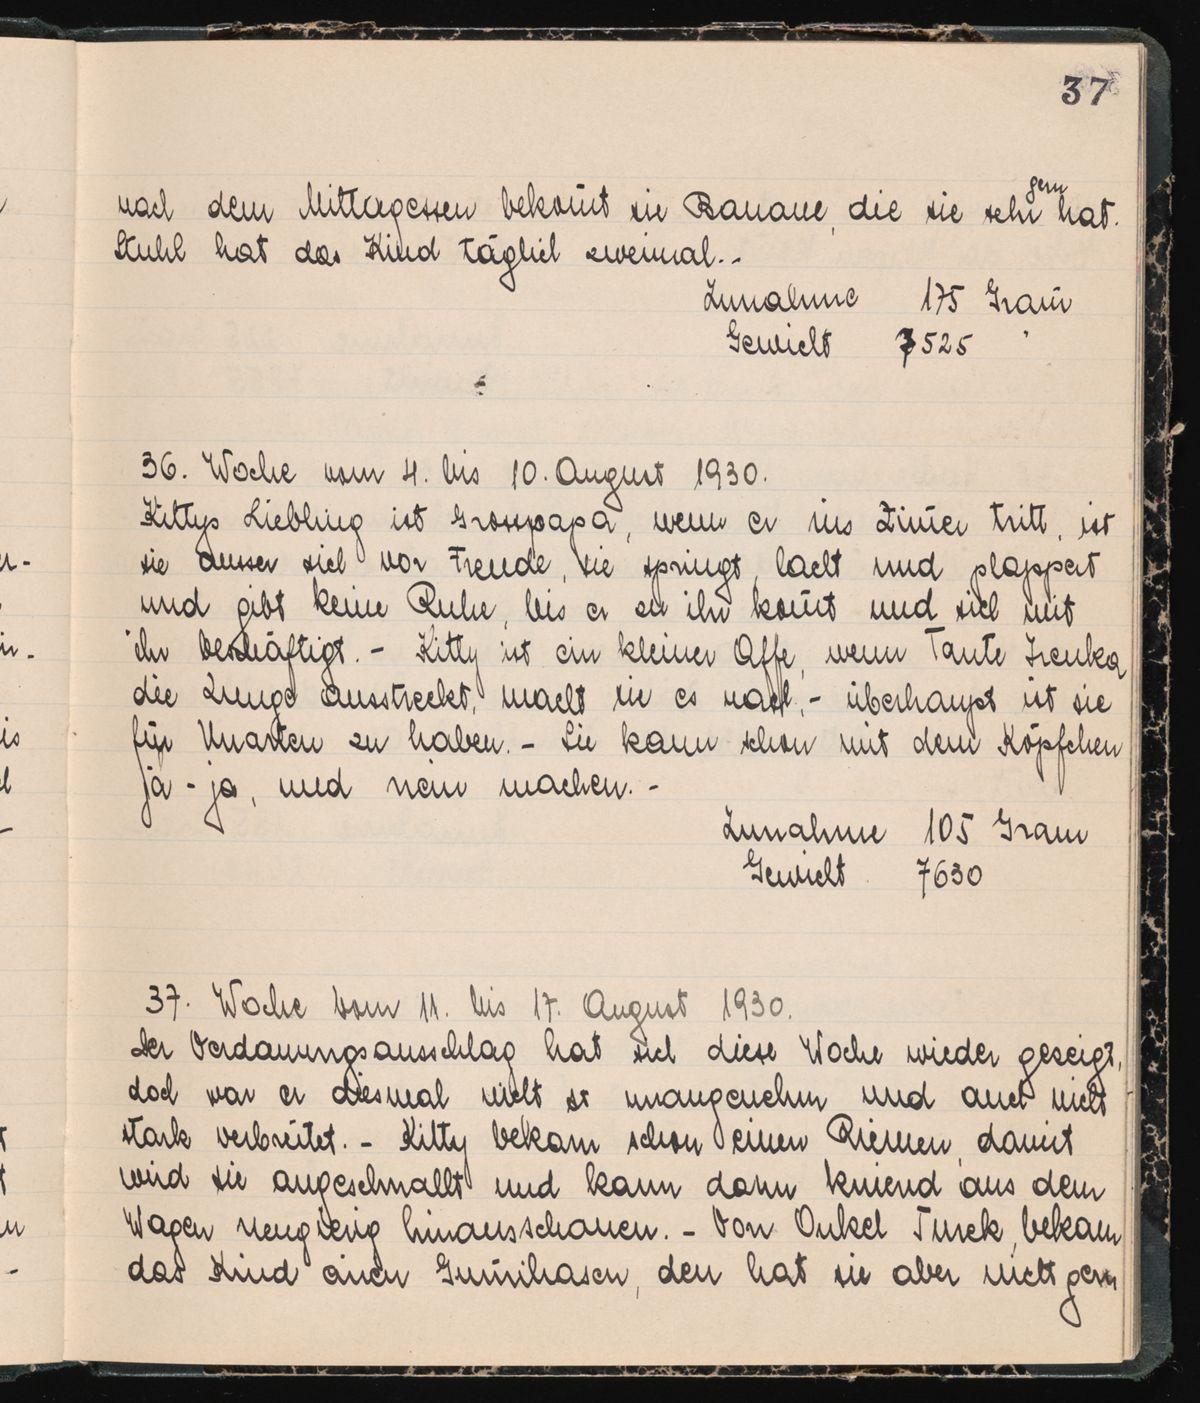 37
nach dem Mittagessen bekom̄t sie Banane, die sie sehr gern hat.
Stuhl hat das Kind täglich zweimal.-
Zunahme 175 Gram̄
Gewicht 7525 "
36. Woche vom 4. bis 10. August 1930.
Kittys Liebling ist Grosspapa, wenn er ins Zim̄er tritt, ist
sie ausser sich vor Freude, sie springt, lacht und plappert
und gibt keine Ruhe, bis er zu ihr kom̄t und sich mit
ihr beschäftigt. - Kitty ist ein kleiner Affe, wenn Tante Irenka
die Zunge ausstreckt, macht sie es nach, - überhaupt ist sie
für Unarten zu haben. - Sie kann schon mit dem Köpfchen
ja - ja, und nein machen. -
Zunahme 105 Gram
Gewicht 7630
37. Woche vom 11. bis 17. August 1930.
Der Verdauungsausschlag hat sich diese Woche wieder gezeigt,
doch war er diesmal nicht so unangenehm und auch nicht
stark verbreitet. - Kitty bekam schon einen Riemen, damit
wird sie angeschnallt und kann dann kniend aus dem
Wagen neugierig hinausschauen. - Von Onkel Turek, bekam
das Kind einen Gum̄ihasen, den hat sie aber nicht gern